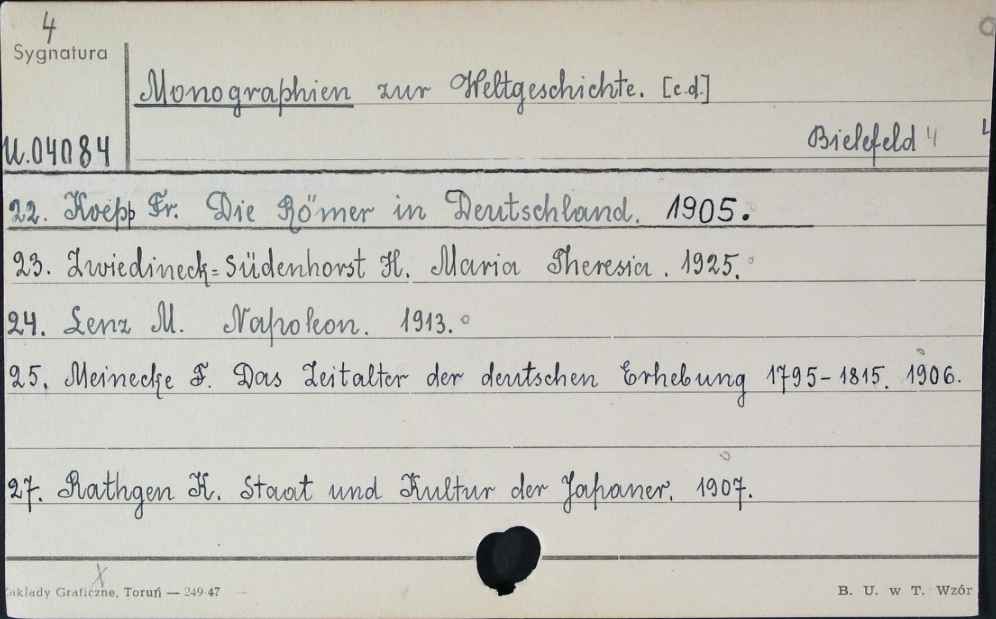 4
Sygnatura
Monographien zur Weltgeschichte. [c.d.]
U.04084
Bielefeld 4
22. Koepp Fr. Die Römer in Deutschland. 1905.
23. Zwiedineck=Südenhorst H. Maria Theresia. 1925.
24. Lenz M. Napoleon. 1913.
25. Meinecke F. Das Zeitalter der deutschen Erhebung 1795-1815. 1906.
27. Rathgen K. Staat und Kultur der Japaner. 1907.
Zakłady Graficzne, Toruń — 249-47
B. U. w T. Wzór